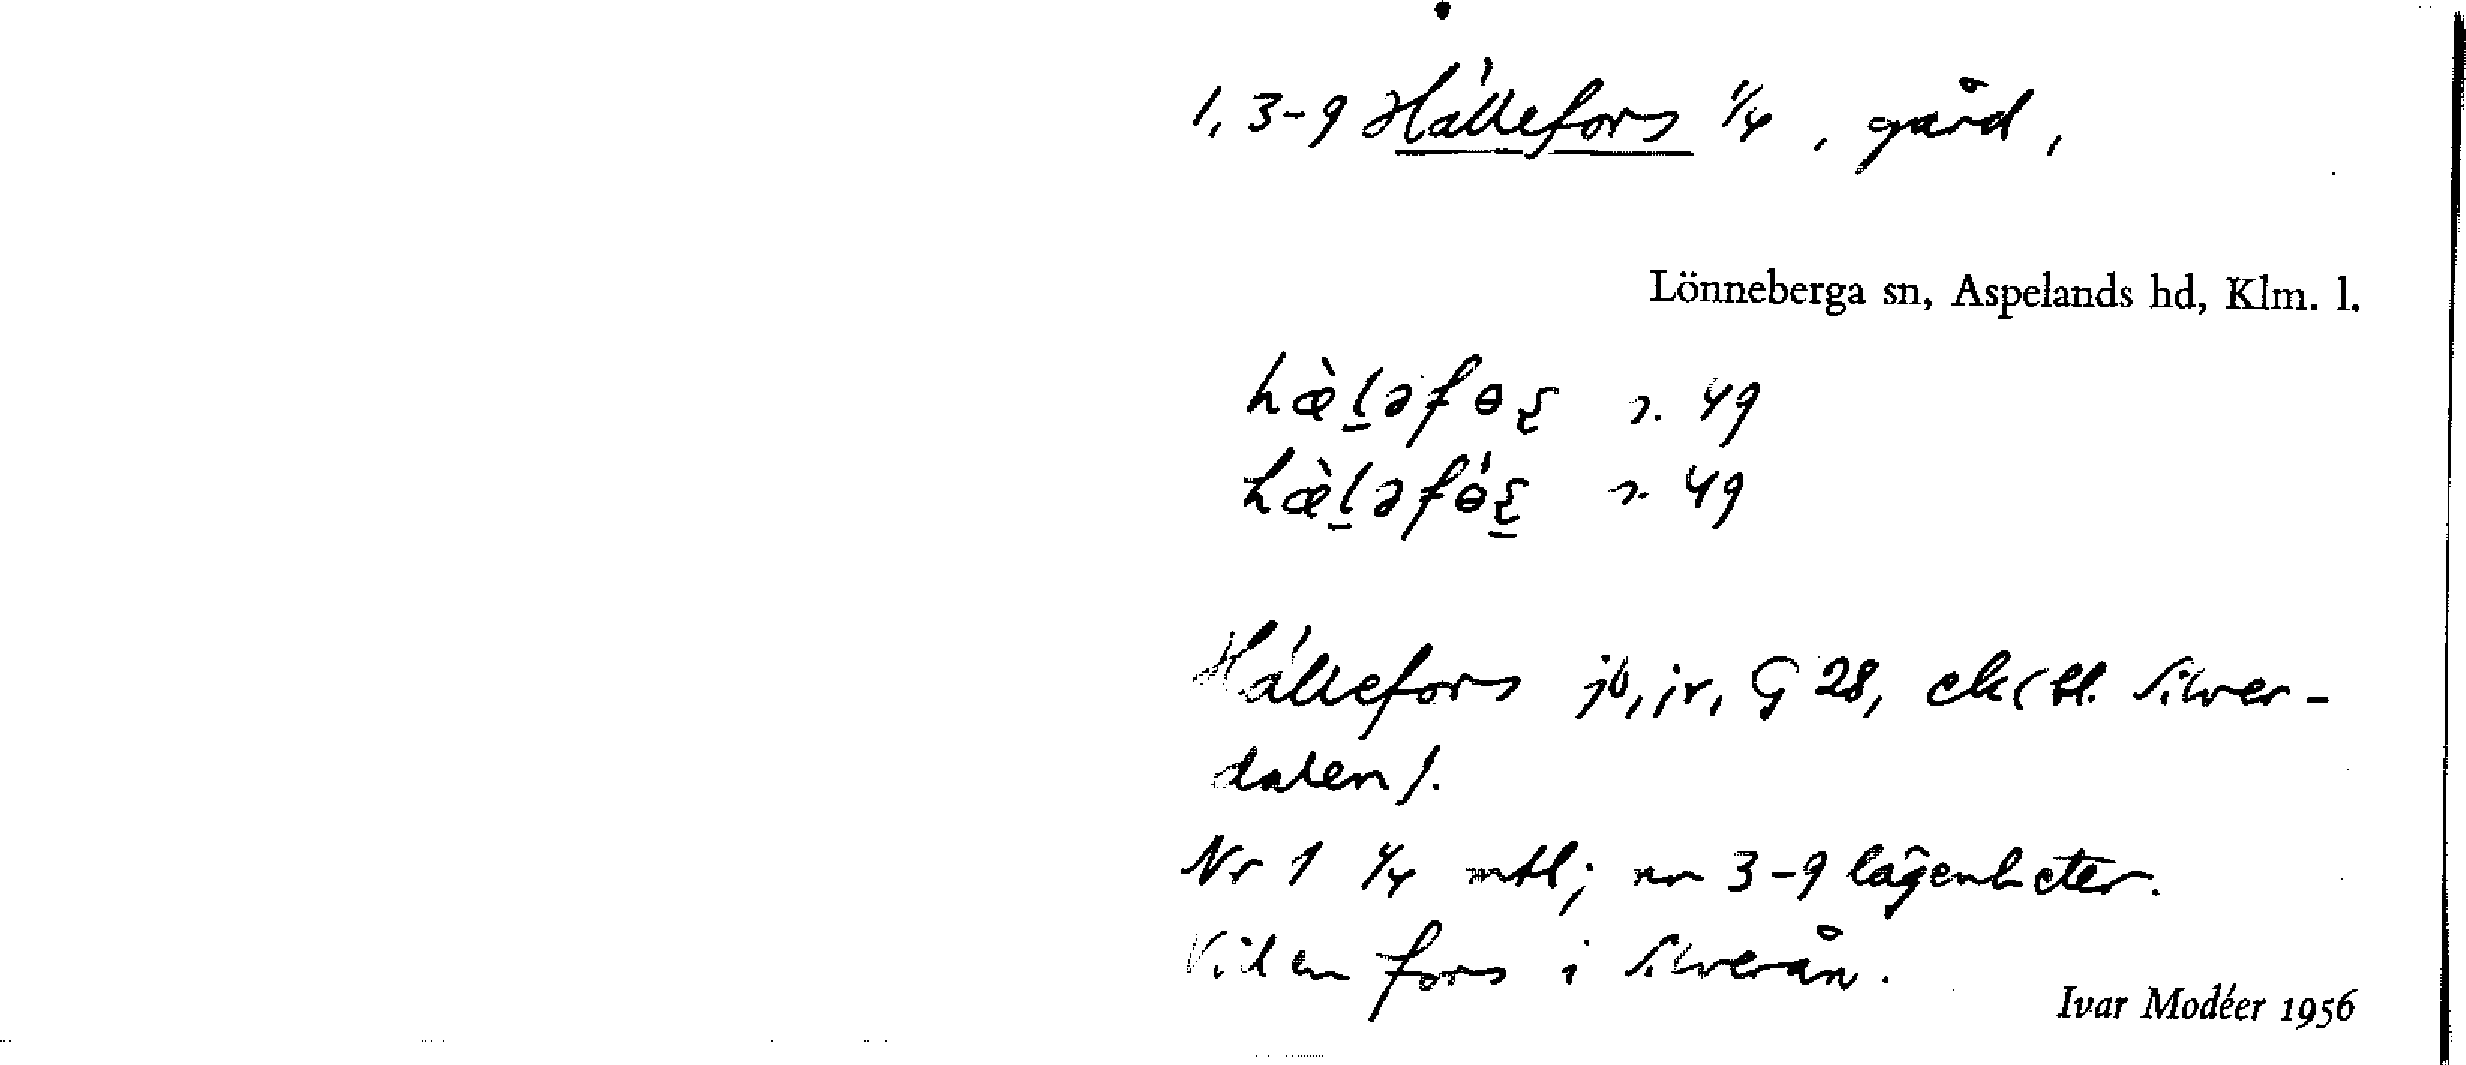 1, 3-9 Hällefors 1/4, gård,
Lönneberga sn, Aspelands hd, Klm. l.
49
49
Hällefors jb, jr, G 28, ek (bl. Silver-
dalen).
Nr 1 1/4 mtl; nr 3-9 lägenheter.
Vid en fors i Silverån.
Ivar Modéer 1956